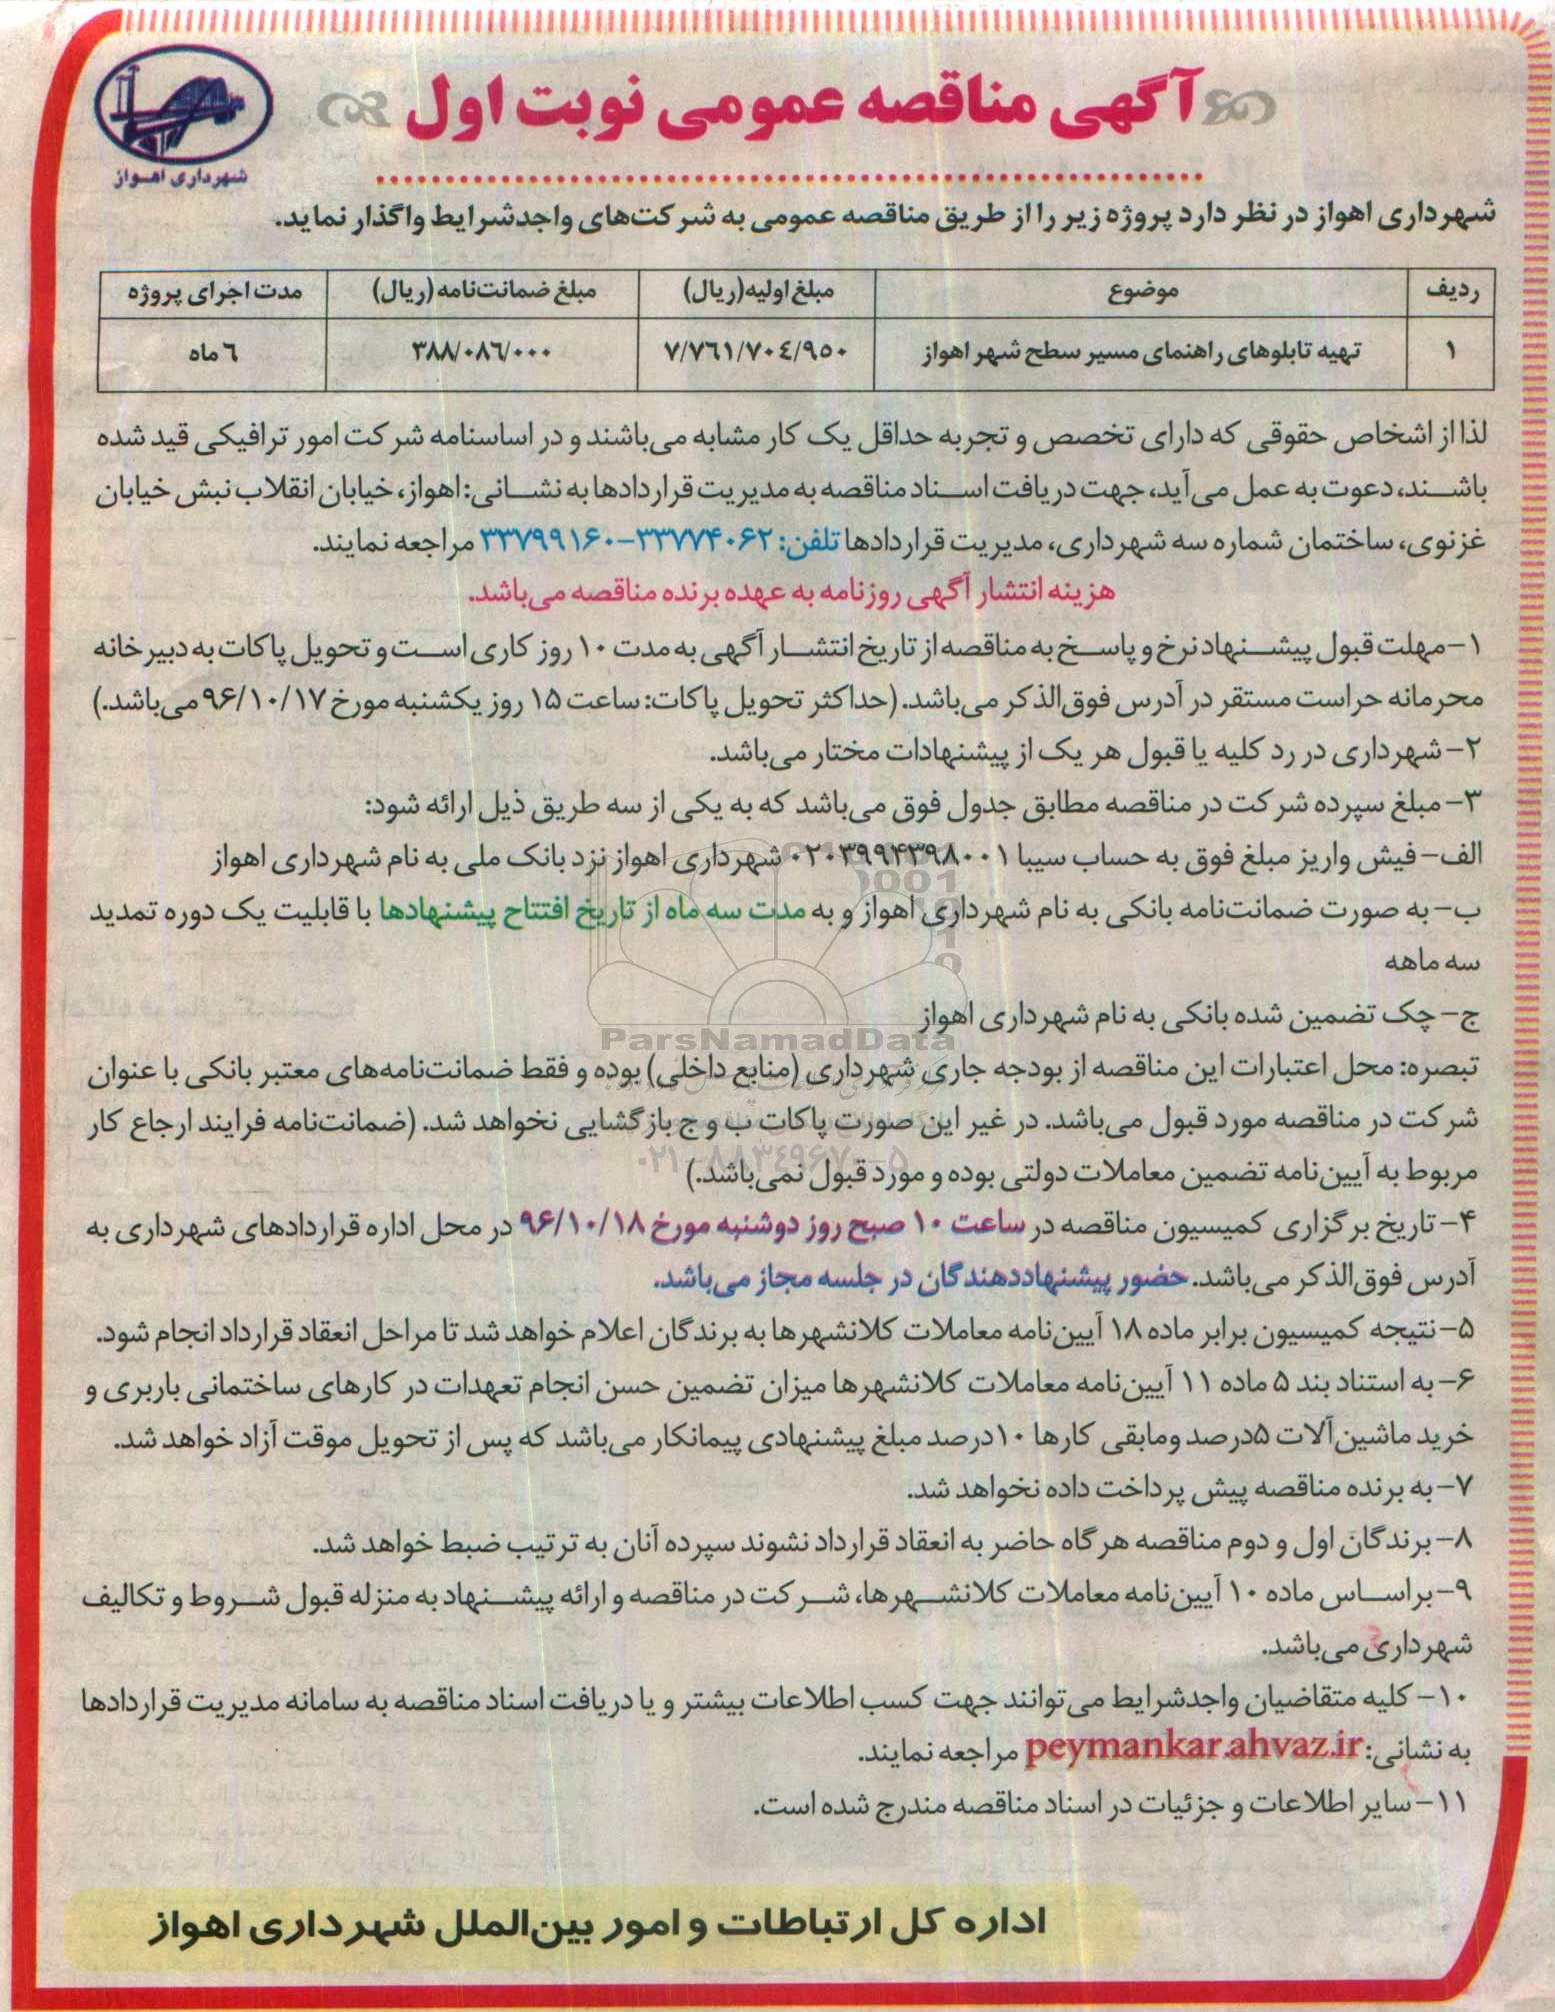 آگهی مناقصه عمومی نوبت اول
شهرداری اهواز
شهرداری اهواز در نظر دارد پروژه زیر را از طریق مناقصه عمومی به شرکت‌های واجدشرایط واگذار نماید.
ردیف موضوع مبلغ اولیه(ریال) مبلغ ضمانت‌نامه (ریال) مدت اجرای پروژه
۱ تهیه تابلوهای راهنمای مسیر سطح شهر اهواز ۷/۷۶۱/۷۰۴/۹۵۰ ۳۸۸/۰۸۶/۰۰۰ ۶ ماه
لذا از اشخاص حقوقی که دارای تخصص و تجربه حداقل یک کار مشابه می‌باشند و در اساسنامه شرکت امور ترافیکی قید شده
باشند، دعوت به عمل می‌آید، جهت دریافت اسناد مناقصه به مدیریت قراردادها به نشانی: اهواز، خیابان انقلاب نبش خیابان
غزنوی، ساختمان شماره سه شهرداری، مدیریت قراردادها تلفن: ۳۳۷۷۴۰۶۲-۳۳۷۹۹۱۶۰ مراجعه نمایند.
هزینه انتشار آگهی روزنامه به عهده برنده مناقصه می‌باشد.
۱- مهلت قبول پیشنهاد نرخ و پاسخ به مناقصه از تاریخ انتشار آگهی به مدت ۱۰ روز کاری است و تحویل پاکات به دبیرخانه
محرمانه حراست مستقر در آدرس فوق‌الذکر می‌باشد. (حداکثر تحویل پاکات: ساعت ۱۵ روز یکشنبه مورخ ۹۶/۱۰/۱۷ می‌باشد.)
۲- شهرداری در رد کلیه یا قبول هر یک از پیشنهادات مختار می‌باشد.
۳- مبلغ سپرده شرکت در مناقصه مطابق جدول فوق می‌باشد که به یکی از سه طریق ذیل ارائه شود:
الف- فیش واریز مبلغ فوق به حساب سیبا ۰۲۰۳۹۹۴۳۹۸۰۰۱ شهرداری اهواز نزد بانک ملی به نام شهرداری اهواز
ب- به صورت ضمانت‌نامه بانکی به نام شهرداری اهواز و به مدت سه ماه از تاریخ افتتاح پیشنهادها با قابلیت یک دوره تمدید
سه ماهه
ج- چک تضمین شده بانکی به نام شهرداری اهواز
ParsNamadData
تبصره: محل اعتبارات این مناقصه از بودجه جاری شهرداری (منابع داخلی) بوده و فقط ضمانت‌نامه‌های معتبر بانکی با عنوان
شرکت در مناقصه مورد قبول می‌باشد. در غیر این صورت پاکات ب و ج بازگشایی نخواهد شد. (ضمانت‌نامه فرایند ارجاع کار
مربوط به آیین‌نامه تضمین معاملات دولتی بوده و مورد قبول نمی‌باشد.)
۴- تاریخ برگزاری کمیسیون مناقصه در ساعت ۱۰ صبح روز دوشنبه مورخ ۹۶/۱۰/۱۸ در محل اداره قراردادهای شهرداری به
آدرس فوق‌الذکر می‌باشد. حضور پیشنهاددهندگان در جلسه مجاز می‌باشد.
۵- نتیجه کمیسیون برابر ماده ۱۸ آیین‌نامه معاملات کلانشهرها به برندگان اعلام خواهد شد تا مراحل انعقاد قرارداد انجام شود.
۶- به استناد بند ۵ ماده ۱۱ آیین‌نامه معاملات کلانشهرها میزان تضمین حسن انجام تعهدات در کارهای ساختمانی باربری و
خرید ماشین‌آلات ۵درصد ومابقی کارها ۱۰درصد مبلغ پیشنهادی پیمانکار می‌باشد که پس از تحویل موقت آزاد خواهد شد.
۷- به برنده مناقصه پیش پرداخت داده نخواهد شد.
۸- برندگان اول و دوم مناقصه هرگاه حاضر به انعقاد قرارداد نشوند سپرده آنان به ترتیب ضبط خواهد شد.
۹- براساس ماده ۱۰ آیین‌نامه معاملات کلانشهرها، شرکت در مناقصه و ارائه پیشنهاد به منزله قبول شروط و تکالیف
شهرداری می‌باشد.
۱۰- کلیه متقاضیان واجدشرایط می‌توانند جهت کسب اطلاعات بیشتر و یا دریافت اسناد مناقصه به سامانه مدیریت قراردادها
به نشانی: peymankar.ahvaz.ir مراجعه نمایند.
۱۱- سایر اطلاعات و جزئیات در اسناد مناقصه مندرج شده است.
اداره کل ارتباطات و امور بین‌الملل شهرداری اهواز